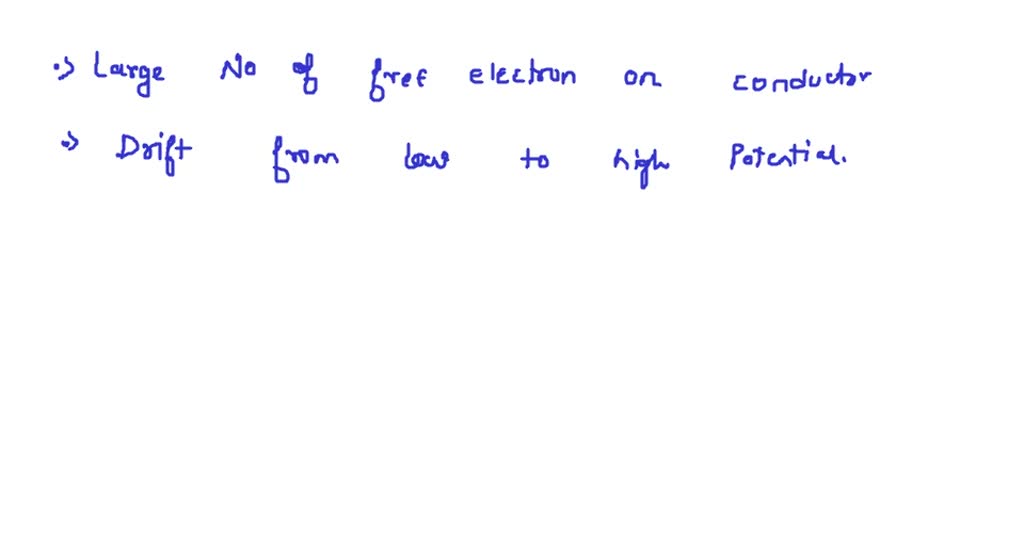 ·> Large No of free electron on conductor
·> Drift from low to high Potential.